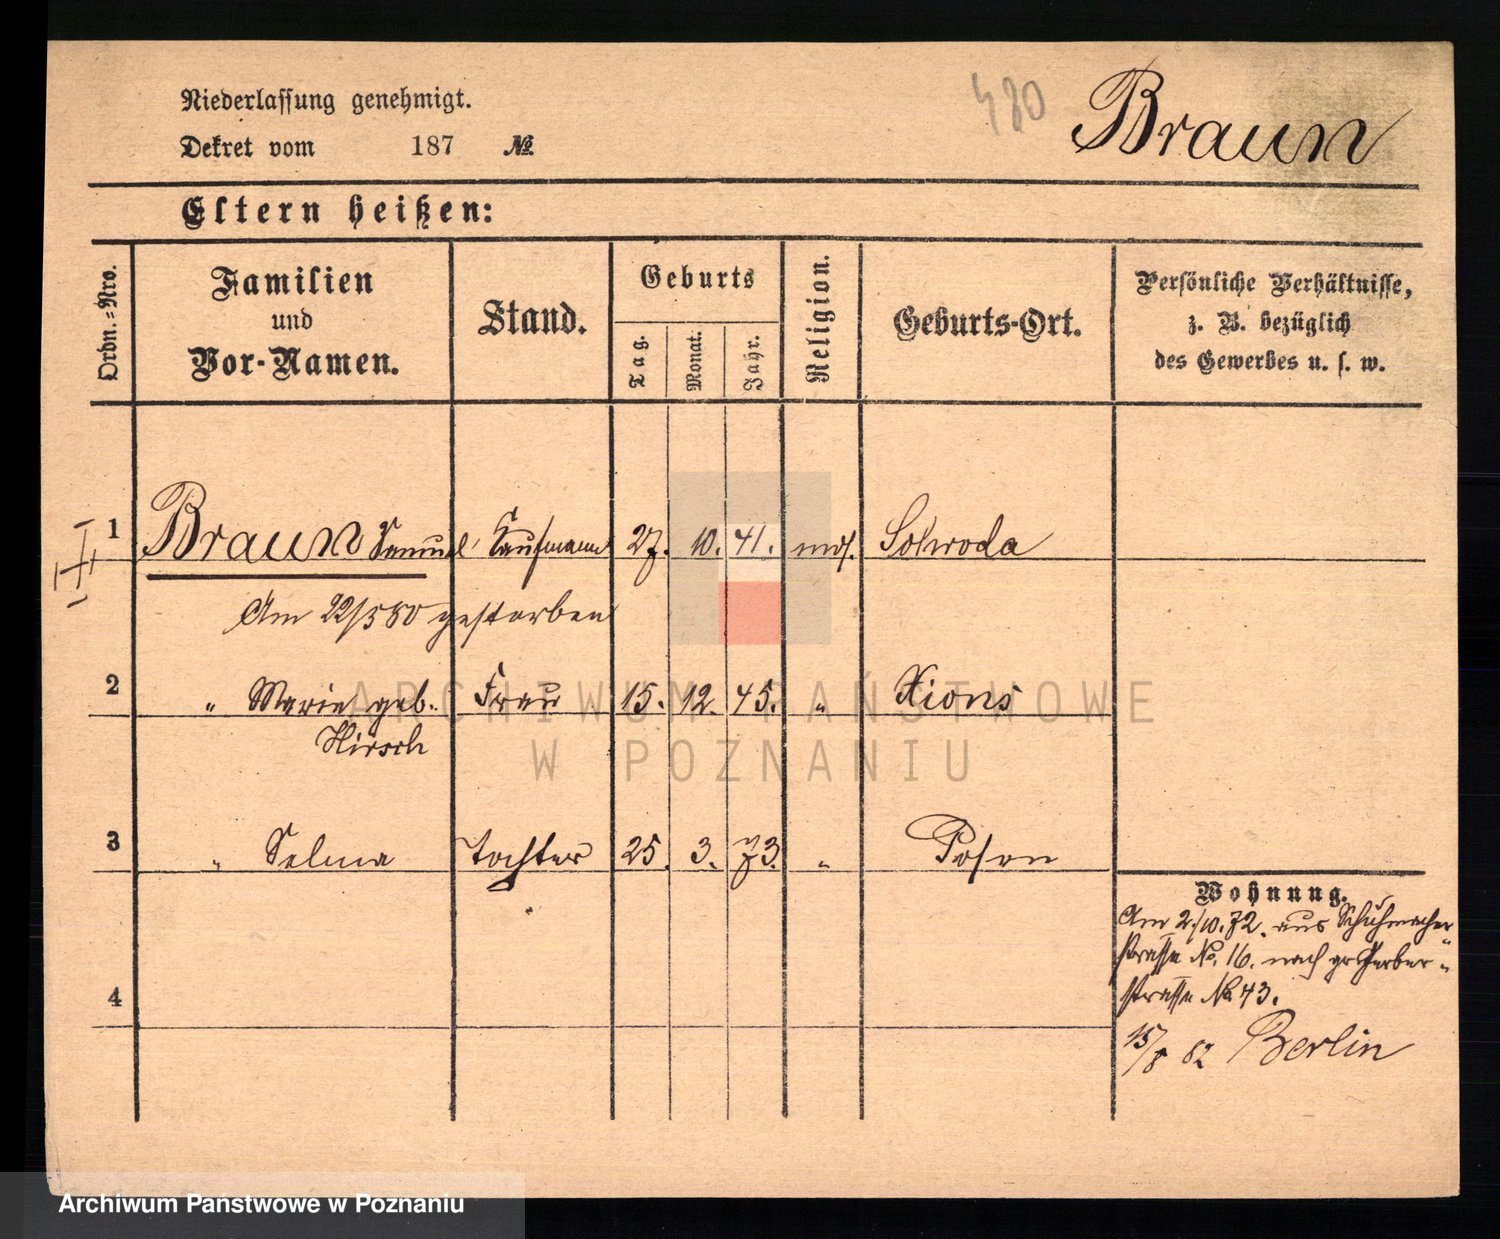 Niederlassung genehmigt.
Dekret vom 187 №
480
Braun
Eltern heißen:
Ordn.-Nro.
Familien
und
Vor-Namen.
Stand.
Geburts
Tag.
Monat.
Jahr.
Religion.
Geburts-Ort.
Persönliche Verhältnisse,
z. B. bezüglich
des Gewerbes u. s. w.
1 Braun Samuel Kaufmann 27. 10. 41. mos. Sokwoda
Am 22/5 80 gestorben
2 " Marie geb. Frau 15. 12. 45. " Xions
Hirsch
3 " Selma Tochter 25. 3. 73. " Posen
4
Wohnung.
Am 2/10. 72. aus Schuhmacher
strasse No. 16. nach gr. Gerber-
strasse No 43.
15/8 82 Berlin
ARCHIWUM PAŃSTWOWE
W POZNANIU
Archiwum Państwowe w Poznaniu